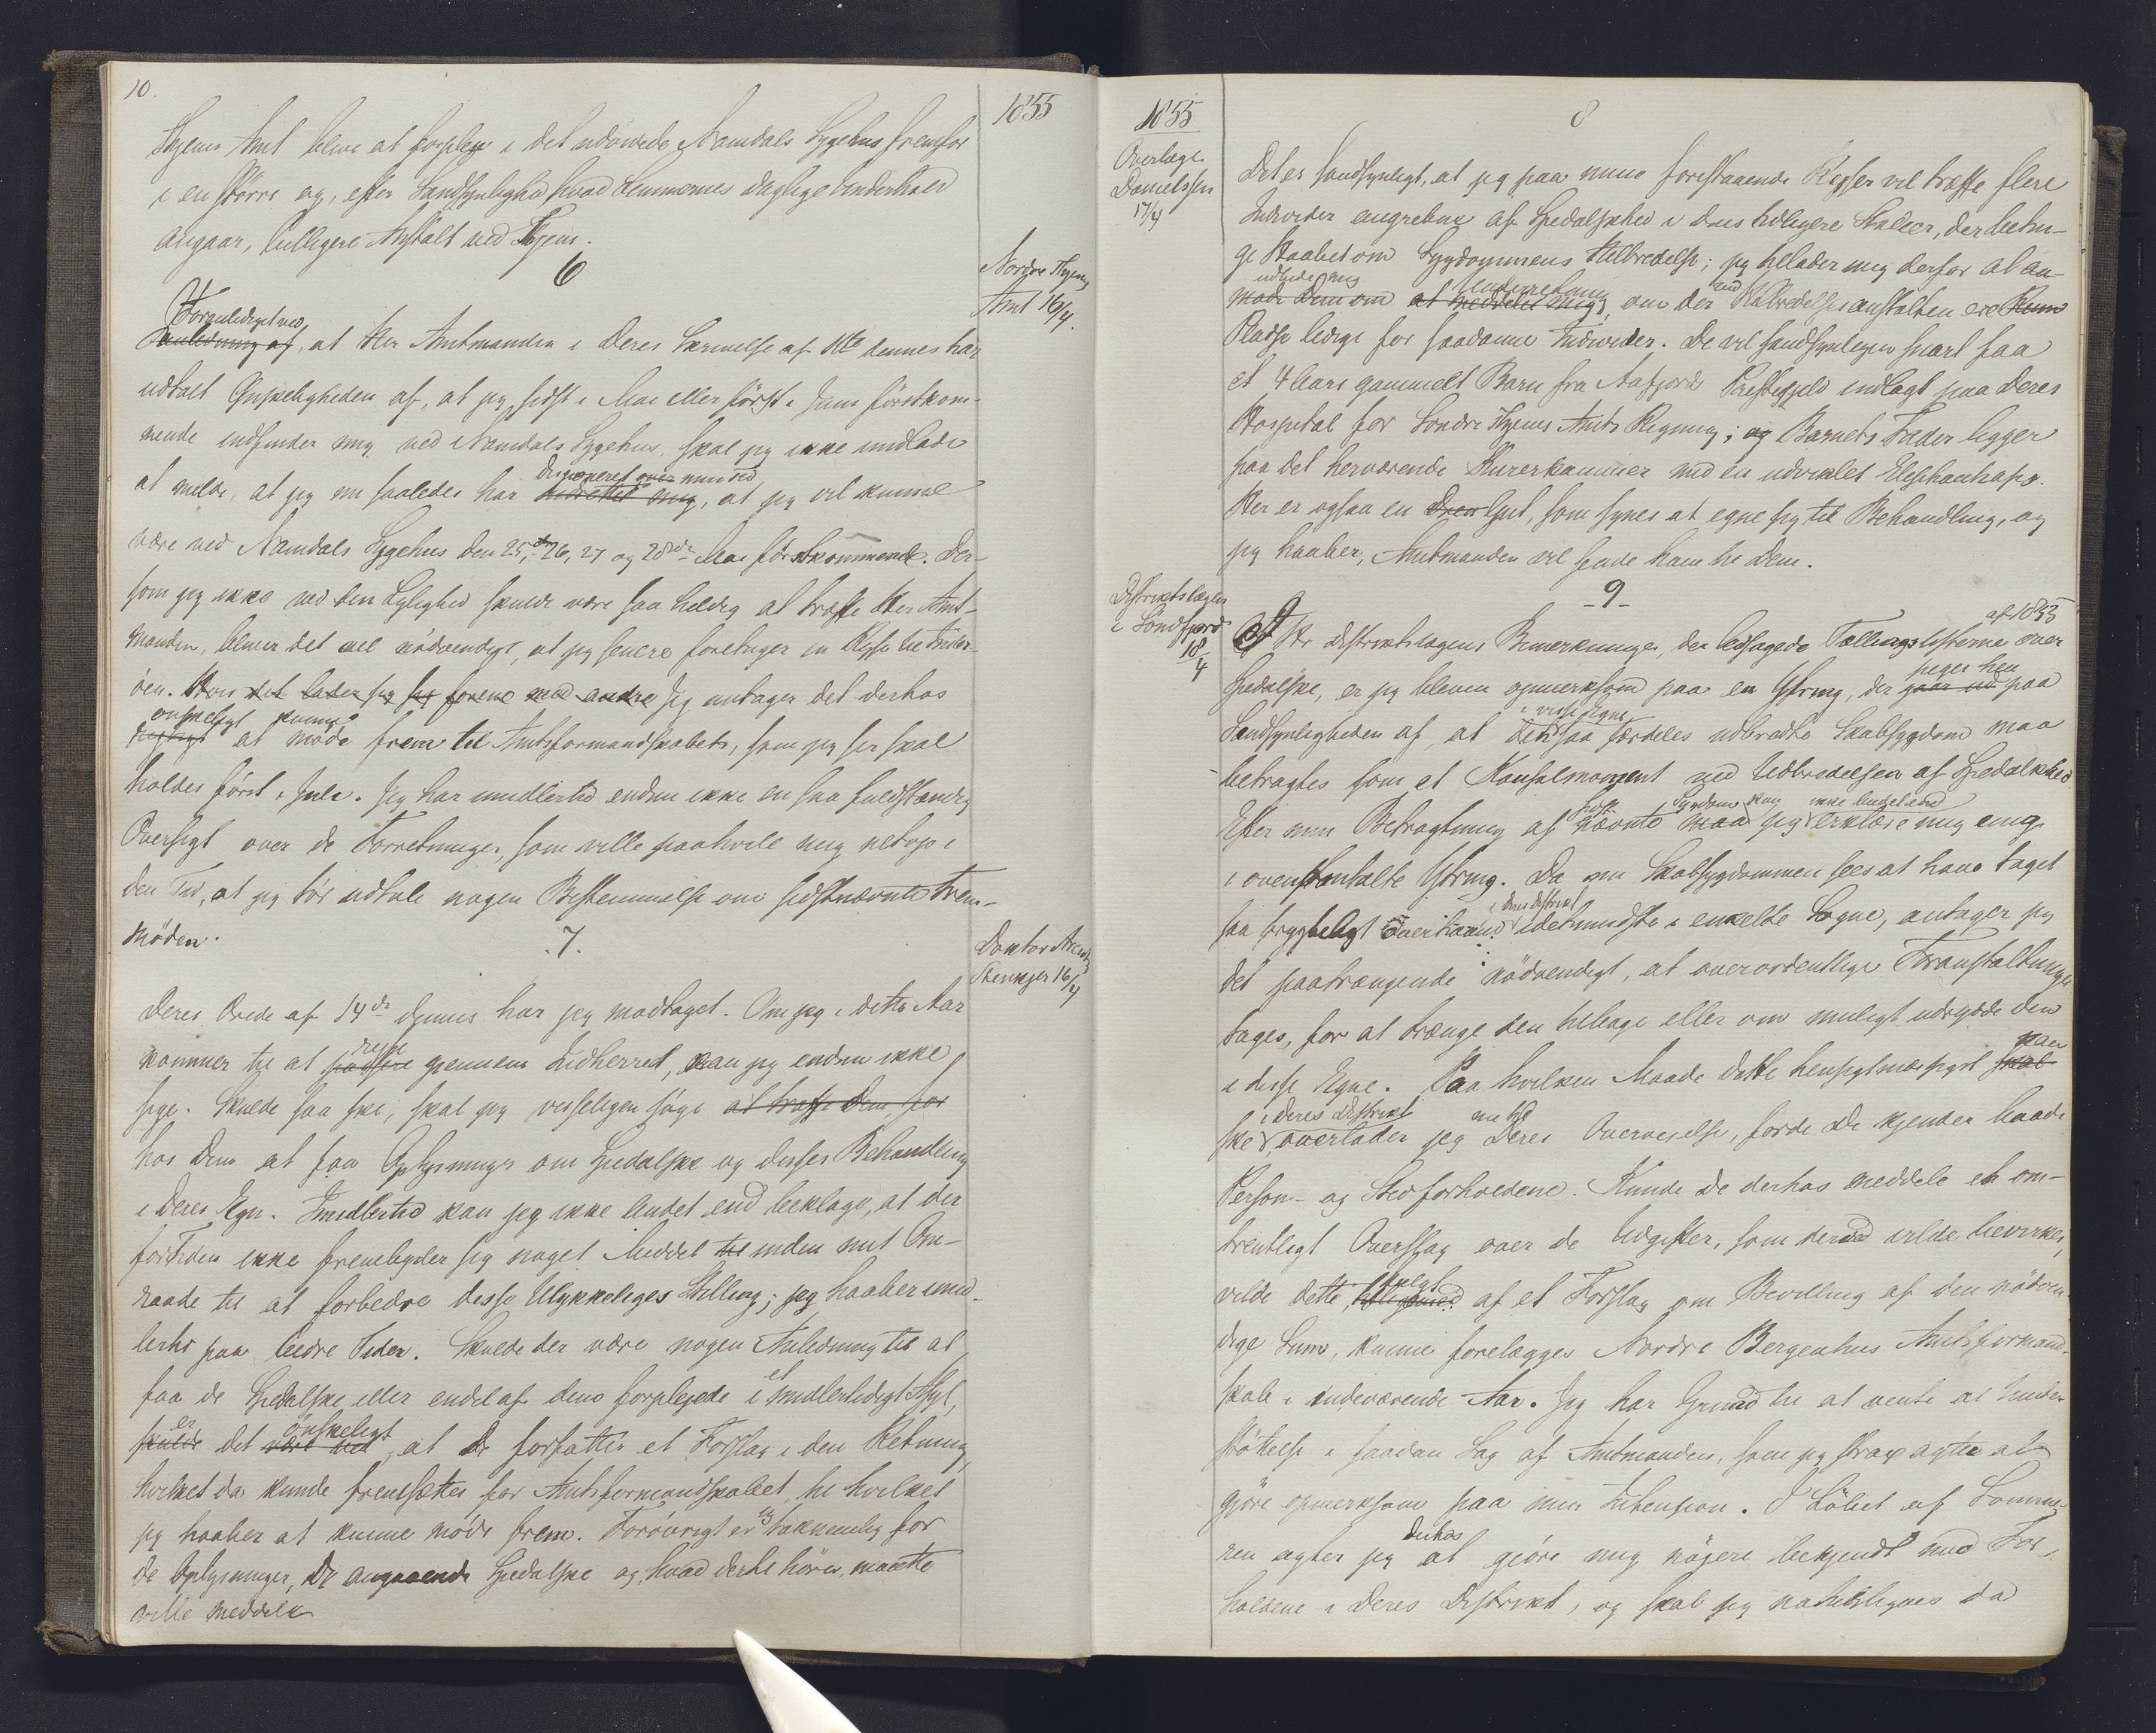 10.
1855
Thjems Amt blive at forpleje i det udvidede Namdals Sygehus fremfor
i en större og, efter Sandsynlighed hvad Lemmernes daglige Underhold
angaar, billigere Anstalt ved Thjem.
6
Nordre Thjems
Amt 16/4.
Foranlediget ved
Anledning af, at Her Amtmanden i Deres Skrivelse af 11te dennes har
udtalt Ønskeligheden af, at jeg sidst i Mai eller först i Juni förstkom-
mende indfinder mig ved Namdals Sygehus, skal jeg ikke undlade
disponeret over min Tid
at melde, at jeg nu saaledes har indrettet mig, at jeg vil kunne
være ved Namdals Sygehus den 25de, 26, 27 og 28de Mai förstkommende. Der-
som jeg ikke ved den Leilighed skulde være saa heldig at træffe Her Amt-
manden, bliver det vel nödvendigt, at jeg senere foretager en Rejse til Inder-
öen. Hvis det lader sig forene med andre Jeg antager det derhos
önskeligt kunne
at möde frem til Amtsformandskabets, som jeg ser skal
holdes först i Juli. Jeg har imidlertid endnu ikke en saa fuldstændig
Oversigt over de Forretninger, som ville paahvile mig netop i
den Tid, at jeg tör udtale nogen Bestemmelse om sidstnævnte Frem-
möden.
7.
Doktor
Stenkjer 16/4
Deres Brev af 14de dennes har jeg modtaget. Om jeg i dette Aar
rejse
kommer til at passere gjennem Lidherred, kan jeg endnu ikke
sige. Skulde saa ske, skal jeg visseligen söge at træffe Dem, for
hos Dem at faa Oplysninger om Spedalske og disses Behandling
i Deres Egn. Imidlertid kan jeg ikke Andet end beklage, at der
for Tiden ikke frembyder sig noget Middel til inden mit Om-
raade til at forbedre disse Ulykkeliges Stilling; jeg haaber imid-
lertid paa bedre Tider. Skulde der være nogen Anledning til at
et
faa de Spedalske eller endel af dem forplejede i imidlertidigt Asyl,
er önskeligt
skulde det være ved, at De forfatter et Forslag i den Retning,
hvilket da kunde fremsættes for Amtsformandskabet, til hvilket
jeg haaber at kunne möde frem. Forövrigt er jeg taknemlig for
de Oplysninger, De angaaende Spedalske og, hvad dertil hörer, maatte
ville meddele
1855
Overlæge
Danielssen
17/4
8
Det er sandsynligt, at jeg paa mine forestaaende Rejser vil træffe flere
Individer angrebne af Spedalskhed i dens tidligere Stadier, der betin-
ge Haabet om Sygdommens Helbredelse; jeg tillader mig derfor at an-
udbede mig Underretning
mode Dem om at meddele mig, om der ved Helbredelsesanstalten ere Rum
Pladse ledige for saadanne Individer. De vil sandsynligen snart faa
et 4 Aars gammelt Barn fra Aafjords Præstegjeld indlagt paa Deres
Hospital for Söndre Thjems Amts Regning; og Barnets Fader ligger
paa det herværende Kurerkammer med en udviklet Elephantiasis.
Her er ogsaa en Dreng Gut, som synes at egne sig til Behandling, og
jeg haaber, Amtmanden vil sende ham til Dem.
Distriktslægen
i Söndfjord
18/4
-9-
af 1855
Af Hr Distriktslægens Bemærkninger, der ledsagede Tællingslisterne over
peger hen
Spedalske, er jeg bleven opmerksom paa en Ytring, der gaar ud paa
i visse Egne
Sandsynligheden af, at den saa særdeles udbredte Skabsygdom maa
betragtes som et Kausalmoment ved Udbredelsen af Spedalskhed.
sidst Sygdom kan ikke Andet end
Efter min Betragtning af nævnte maa jeg erklære mig enig
i ovenstaaende Ytring. Da nu Skabsygdommen sees at have taget
i Deres Distrikt
saa frygteligt Overhaand idetmindste i enkelte Sogne, antager jeg
det paatrængende nödvendigt, at overordentlige Foranstaltninger
tages, for at trænge den tilbage eller om muligt udrydde den
kan
i disse Egne. Paa hvilken Maade dette hensigtsmæssigst skal
i Deres Distrikt
ske, overlader jeg Deres Overvejelse, fordi De kjender baade
Person- og Stedforholdene. Kunde De derhos meddele et om-
trentligt Overslag over de Udgifter, som derved vilde bevirkes,
fulgt
vilde dette af et Forslag om Bevilling af den nödven-
dige Sum, kunne forelægges Nordre Bergenhus Amtsformand-
skab i indeværende Aar. Jeg har Grund til at vente al Under-
stöttelse i saadan Sag af Amtmanden, som jeg strax agter at
gjöre opmerksom paa min Intension. I Löbet af Somme-
derhos
ren agter jeg at gjöre mig nöjere bekjendt med For-
holdene i Deres Distrikt, og skal jeg naturligvis da